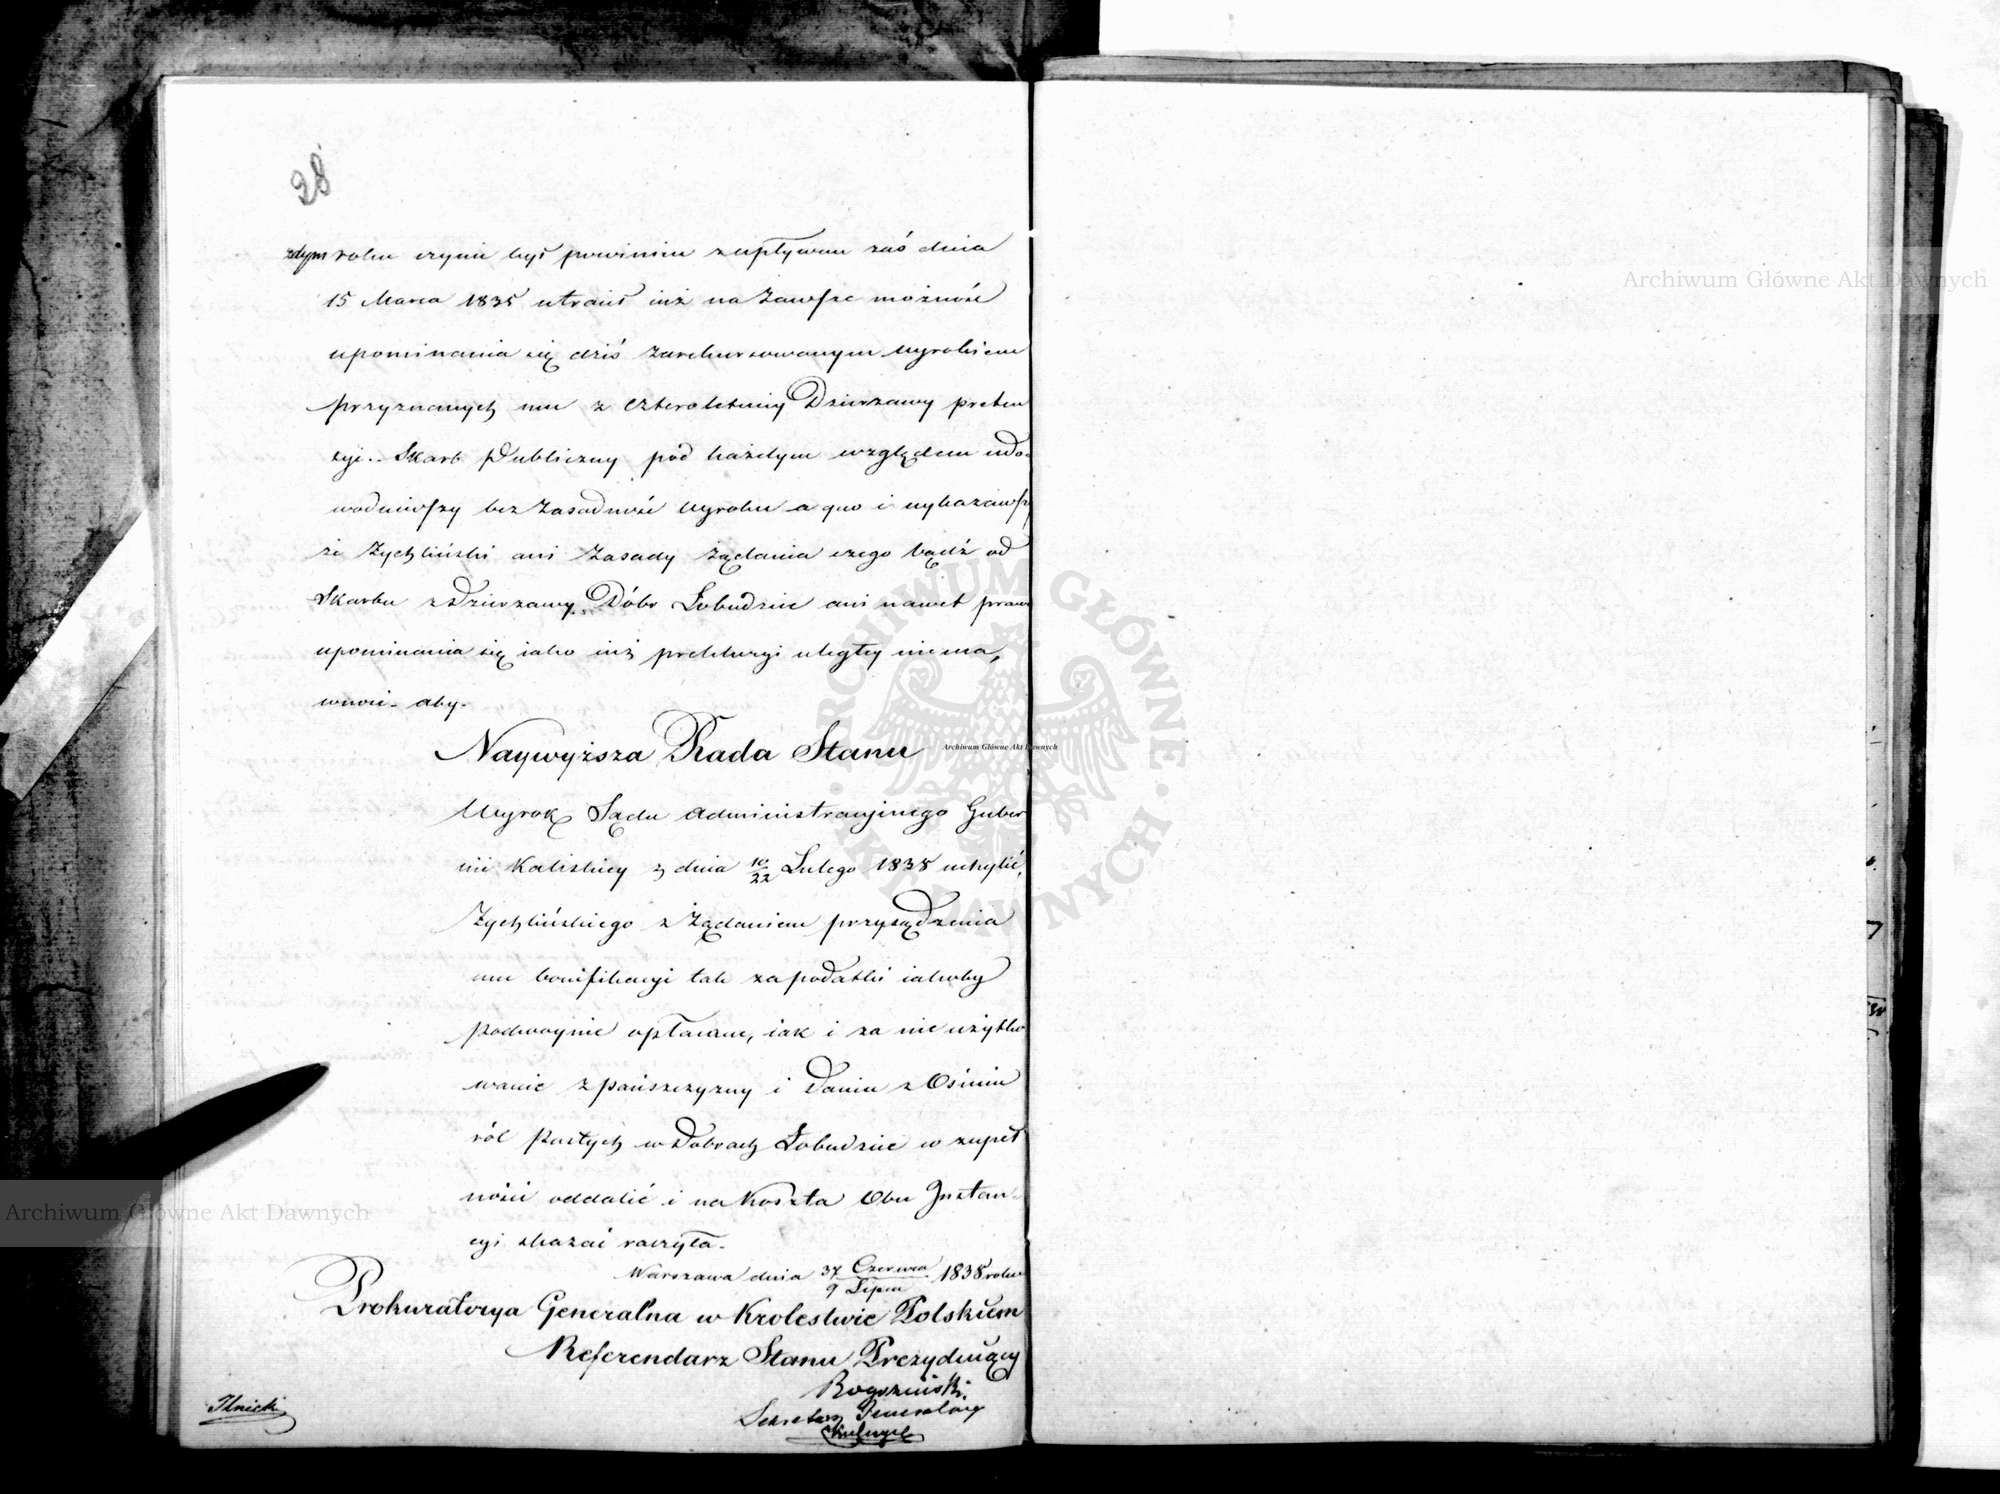 28
żdym roku czynić był powinien z upływem zaś dnia
15 Marca 1835 utracił iuż na zawsze możność
upominania się dziś zarekursowanym wyrokiem
przyznanych mu z czteroletniey Dzierżawy preten
syi. Skarb Publiczny pod każdym względem udo-
wodniwszy bezzasadność wyroku a quo i wykazawszy
że Zychliński ani zasady żądania czego bądź od
Skarbu z Dzierżawy Dóbr Łobudzice ani nawet prawa
upominania się iako iuż prekluzyi uległey niema,
wnosi- aby-
Naywyższa Rada Stanu
Wyrok Sądu Administracyjnego Guber
nii Kaliskiey z dnia 10/22 Lutego 1838 uchylić,
Zychlińskiego z żądaniem przysądzenia
mu bonifikacyi tak za podatki iakoby
podwoynie opłacane, iak i za nie użytko
wanie z pańszczyzny i Danin z Ośmiu
ról pustych w Dobrach Łobudzice w zupeł
ności oddalić i na koszta Obu Instan-
cyi skazać raczyła-
Warszawa dnia 27 Czerwca / 9 Lipca 1838 roku
Prokuratorya Generalna w Krolestwie Polskiem
Referendarz Stanu Prezyduiący
Rogoziński.
Sekretarz Generalny
Ilnicki
Archiwum Główne Akt Dawnych
Archiwum Główne Akt Dawnych
Archiwum Główne Akt Dawnych
ARCHIWUM GŁÓWNE AKT DAWNYCH